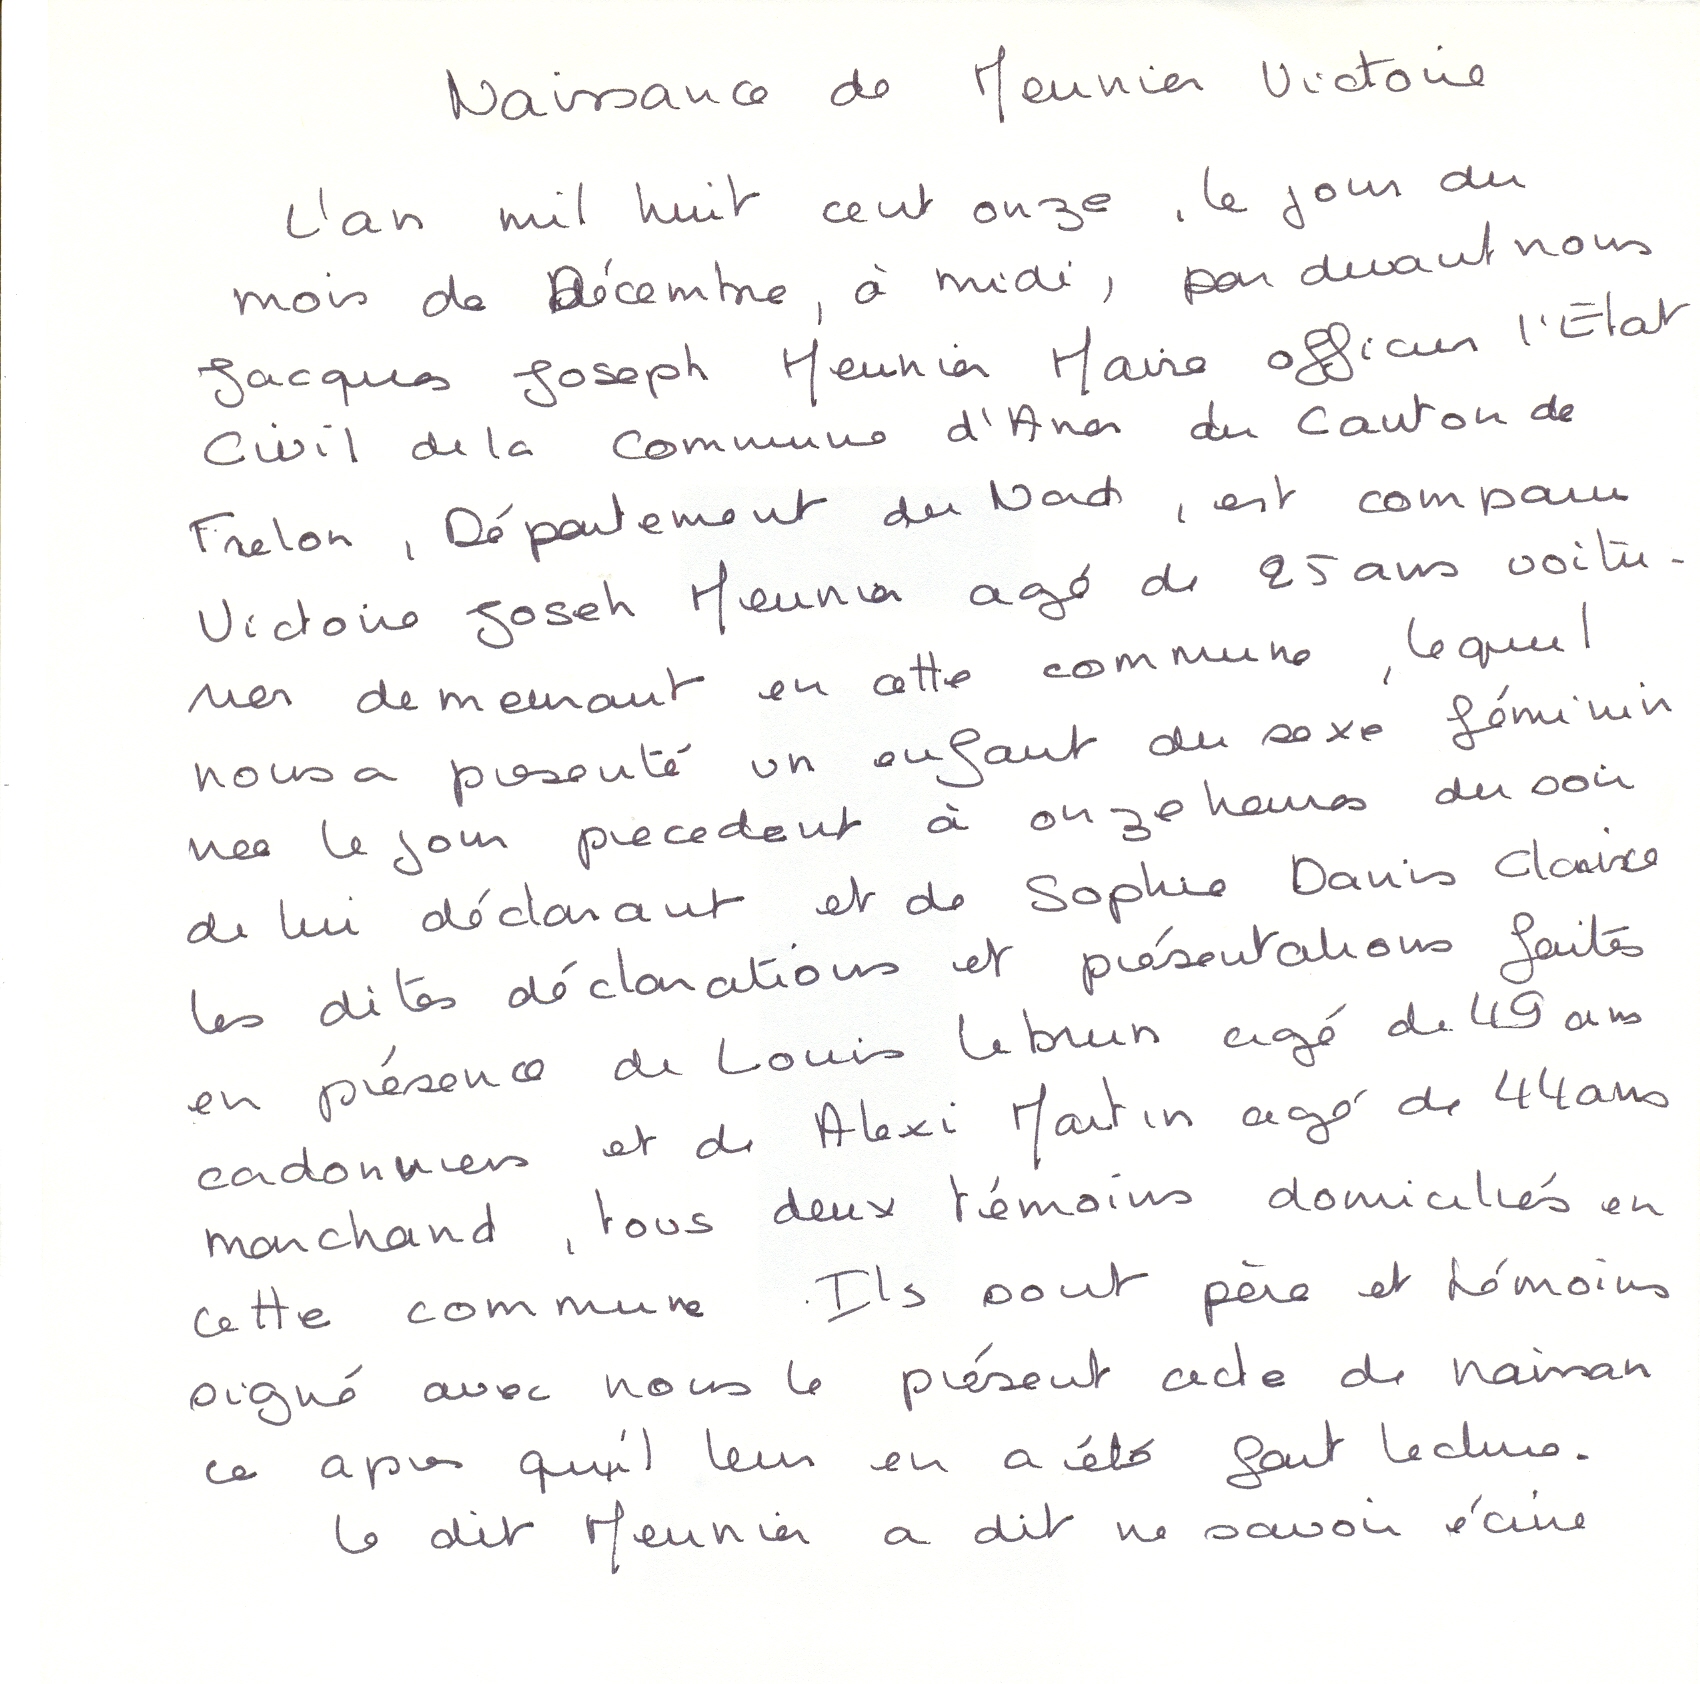 Naissance de Meunier Victoire
L'an mil huit cent onze, le jour du
mois de Décembre, à midi, par devant nous
Jacques Joseph Meunier Maire officier l'Etat
Civil de la Commune d'Anor du Canton de
Trelon, Département du Nord, est comparu
Victoire Joseh Meunier agé de 25 ans voitu-
rier demeurant en cette commune, lequel
nous a presenté un enfant du sexe féminin
nee le jour precedent à onze heures du soir
de lui déclarant et de Sophie Danis Clarisse
les dites déclarations et présentations faites
en présence de Louis Lebrun agé de 49 ans
cadonniers et de Alexi Martin agé de 44 ans
marchand, tous deux témoins domiciliés en
cette commune. Ils sont père et témoins
signé avec nous le présent acte de naissan
ce apres qu'il leur en a été fait lecture.
le dit Meunier a dit ne savoir écrire